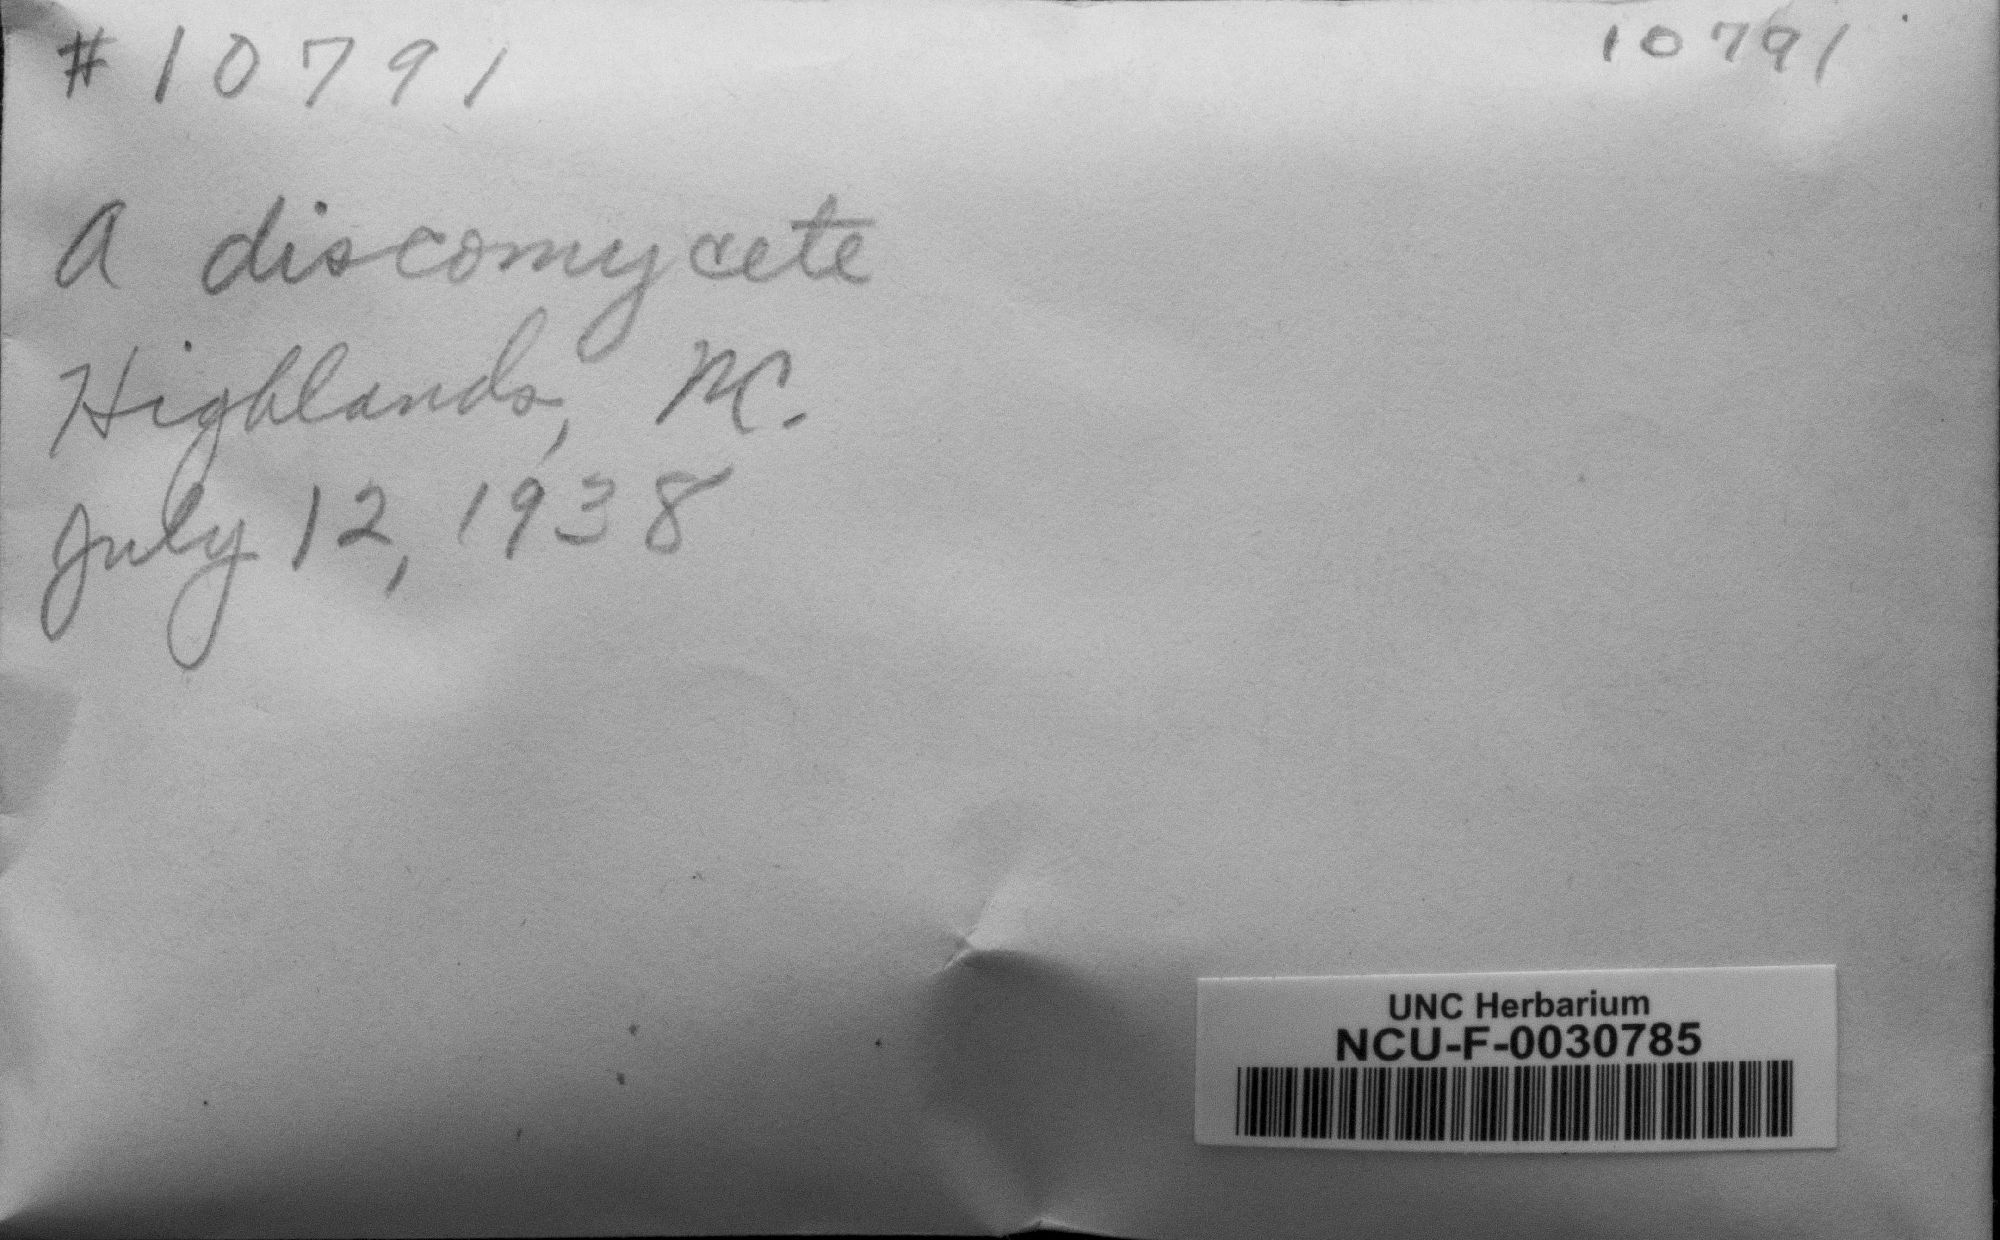 #10791
10791
A discomycete
Highlands, NC.
July 12, 1938
UNC Herbarium
NCU-F-0030785